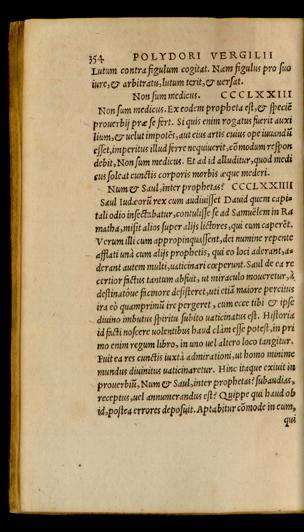 354 POLYDORI VERGILII
Lutum contra figulum cogitat. Nam figulus pro suo
iure, & arbitratu, lutum terit, & uersat.
Non sum medicus. CCCLXXIII
Non sum medicus. Ex eodem propheta est, & speciē
prouerbij præ se fert. Si quis enim rogatus fuerit auxi
lium, & uelut impotēs, aut eius artis cuius ope iuuandū
esset, imperitus illud ferre nequiuerit, cōmodum respon
debit, Non sum medicus. Et ad id alluditur, quod medi
cus soleat cunctis corporis morbis æque mederi.
Num & Saul, inter prophetas? CCCLXXIIII
Saul Iudæorū rex cum audiuisset Dauid quem capi-
tali odio insectabatur, contulisse se ad Samuelem in Ra
matha, misit alios super alijs lictores, qui eum caperēt.
Verum illi cum appropinquassent, dei numine repente
afflati unà cum alijs prophetis, qui eo loci aderant, a-
derant autem multi, uaticinari cœperunt. Saul de ea re
certior factus tantum abfuit, ut miraculo moueretur, à
destinatóue facinore desisteret, uti etiā maiore percitus
ira eò quamprimū ire pergeret, cum ecce tibi & ipse
diuino imbutus spiritu subito uaticinatus est. Historia
id facti noscere uolentibus haud clàm esse potest, in pri
mo enim regum libro, in uno uel altero loco tangitur.
Fuit ea res cunctis iuxtà admirationi, ut homo minime
mundus diuinitus uaticinaretur. Hinc itaque exiuit in
prouerbiū, Num & Saul, inter prophetas? subaudias,
receptus, uel annumerandus est? Quippe qui haud ob
id, postea errores deposuit. Aptabitur cōmode in eum,
qui